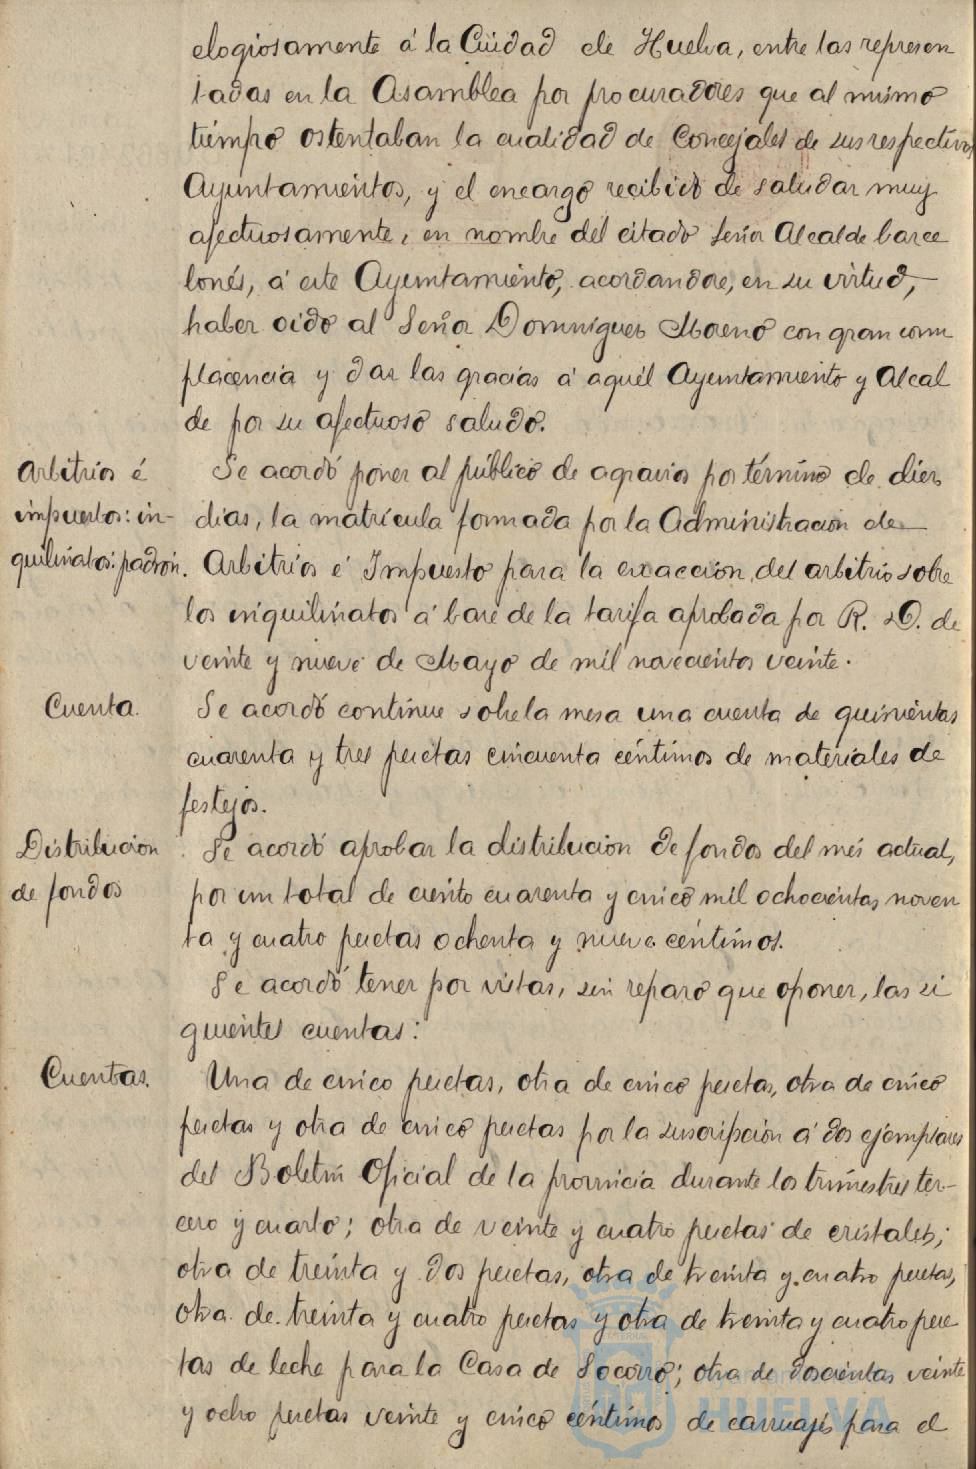 elogiosamente á la Ciudad de Huelva, entre las represen
tadas en la Asamblea por procuradores que al mismo
tiempo ostentaban la cualidad de Concejales de sus respectivos
Ayuntamientos, y el encargo recibido de saludar muy
afectuosamente, en nombre del citado Señor Alcalde barce
lonés, á este Ayuntamiento, acordandose, en su virtud,
haber oido al Señor Dominguez Moreno con gran com
placencia y dar las gracias á aquél Ayuntamiento y Alcal
de por su afectuoso saludo.
Arbitrios é
impuestos: in-
quilinatos: padrón.
Se acordó poner al público de agravios por término de diez
dias, la matrícula formada por la Administracion de
Arbitrios é Impuesto para la exaccion del arbitrio sobre
los inquilinatos á base de la tarifa aprobada por R. D. de
veinte y nueve de Mayo de mil novecientos veinte.
Cuenta.
Se acordó continue sobre la mesa una cuenta de quinientas
cuarenta y tres pesetas cincuenta céntimos de materiales de
festejos.
Distribucion
de fondos
Se acordó aprobar la distribucion de fondos del mes actual,
por un total de ciento cuarenta y cinco mil ochocientas noven
ta y cuatro pesetas ochenta y nueve céntimos.
Se acordó tener por vistas, sin reparo que oponer, las si
guientes cuentas:
Cuentas.
Una de cinco pesetas, otra de cinco pesetas, otra de cinco
pesetas y otra de cinco pesetas por la suscripción á dos ejemplares
del Boletin Oficial de la provincia durante los trimestres ter-
cero y cuarto; otra de veinte y cuatro pesetas de cristales;
otra de treinta y dos pesetas, otra de treinta y cuatro pesetas,
otra de treinta y cuatro pesetas y otra de treinta y cuatro pese
tas de leche para la Casa de Socorro; otra de doscientas veinte
y ocho pesetas veinte y cinco céntimos de carruajes para el
HUELVA